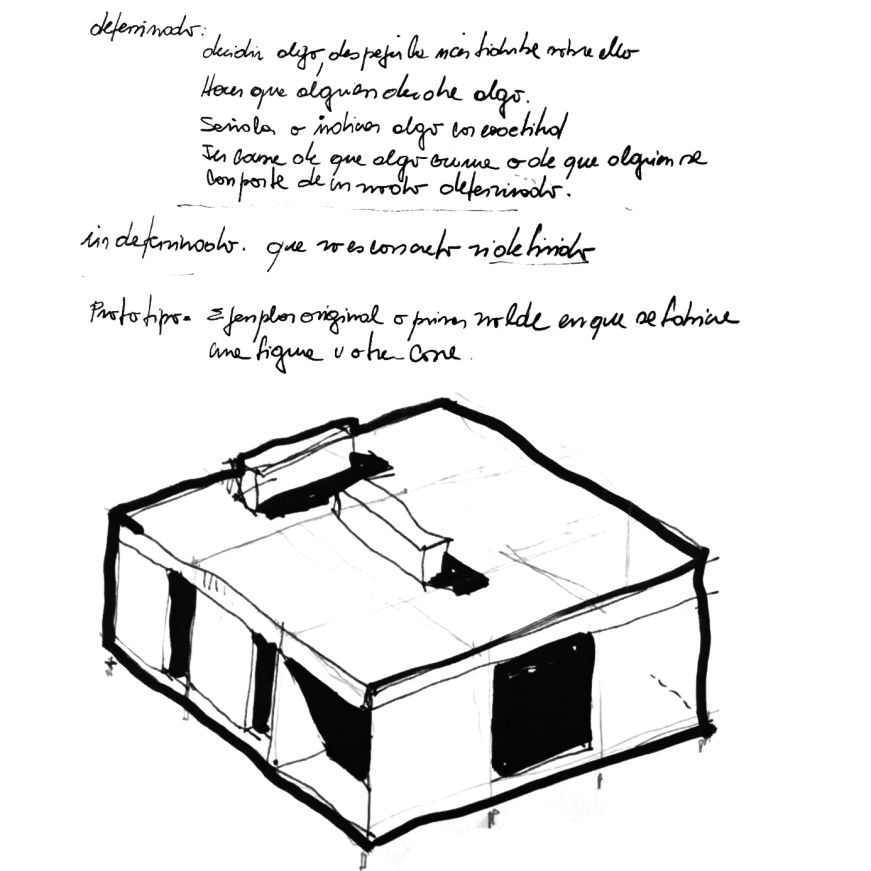 determinado:
decidir algo, despejar la incertidumbre sobre ello
Hacer que alguien decida algo.
Señalar o indicar algo con exactitud
Ser causa de que algo ocurra o de que alguien se
comporte de un modo determinado.
indeterminado. que no es concreto ni definido
Prototipo= Ejemplar original o primer molde en que se fabrica
una figura u otra cosa.